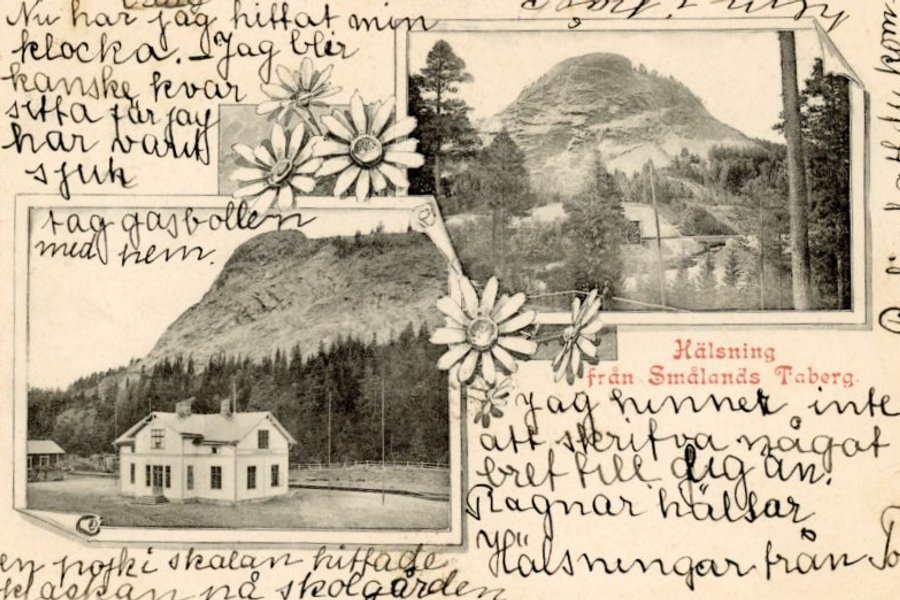 Nu har jag hittat min
klocka. – Jag blir
kanske kvar
sitta för jag
har varit
sjuk
tag gasbollen
med hem.
Hälsning
från Smålands Taberg.
Jag hinner inte
att skrifva något
bref till dig än.
Ragnar hälsar
Hälsningar från
en pojk i skalan hittade
klockan på skolgården